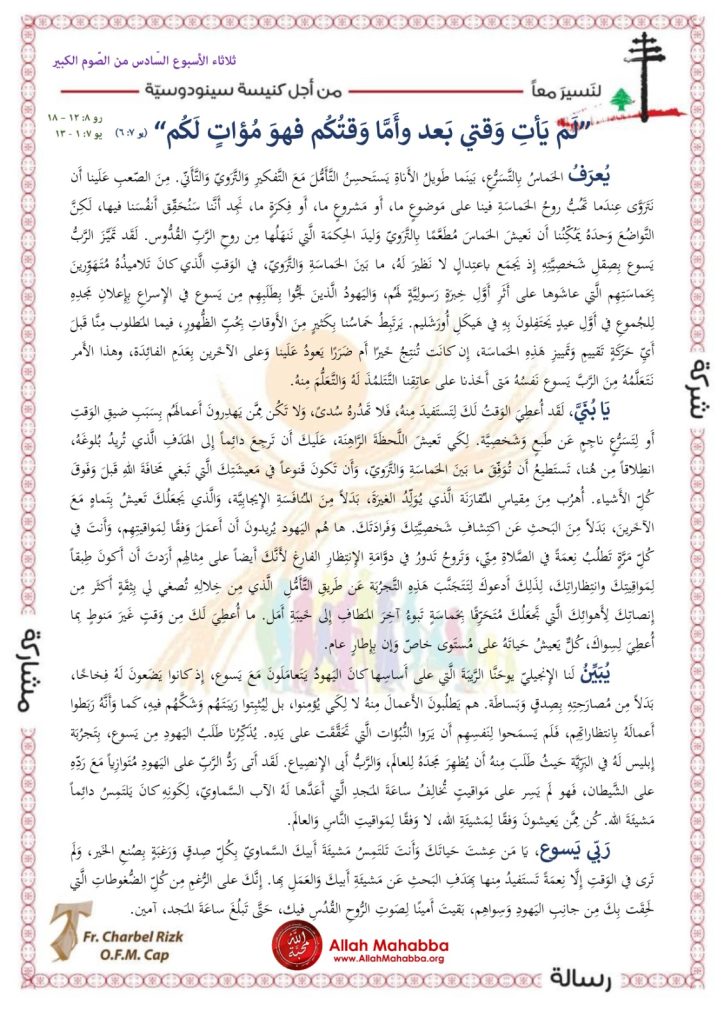 ثلاثاء الأسبوع السّادس من الصّوم الكبير
لنَسيرَ معاً
من أجل كنيسة سينودوسيّة
رو ٨: ١٢ – ١٨
يو ٧: ١ - ١٣
”لَم يَأتِ وَقتي بَعد وأَمَّا وَقتُكُم فهوَ مُؤاتٍ لَكُم“ (يو ٧: ٦)
يُعرَفُ الحَماسُ بِالتَّسَرُّع، بَينَما طَويلُ الأناةِ يَستَحسِنُ التَّأمُّلَ مَعَ التَّفكيرِ والتَّرَويّ والتَّأنّي. مِنَ الصّعبِ عَلَينا أن
نَتَرَوَّى عِندَما تَهُبُّ روحُ الحَماسَةِ فينا على مَوضوعٍ ما، أو مَشروعٍ ما، أو فِكرَةٍ ما، نَجد أنَّنا سَنُحَقِّق أنفُسَنا فيها، لَكِنَّ
التَّواضُعَ وَحدَهُ يُمَكِّنُنا أن نَعيشَ الحَماسَ مُطَعَّمًا بِالتَّرَويّ وَليدَ الحِكمَة الَّتي نَنهَلُها مِن روحِ الرَّبّ القُدُّوس. لَقَد تَمَيَّزَ الرَّبُّ
يَسوع بِصِقلِ شَخصِيَّتِهِ إذ يَجمَع باعتِدالٍ لا نَظيرَ لَهُ، ما بَينَ الحَماسَةِ والتَّرَويّ، في الوَقتِ الَّذي كانَ تَلاميذُهُ مُتَهَوِّرينَ
بِحَماسَتِهِم الَّتي عاشوها على أَثَرِ أَوَّلِ خِبرَةٍ رَسولِيَّةٍ لَهُم، وَاليَهودُ الَّذينَ لَجُّوا بِطَلَبِهِم مِن يَسوع في الإسراعِ بِإعلانِ مَجدِهِ
لِلجُموعِ في أوَّلِ عيدٍ يَحتَفِلونَ بِهِ في هَيكَلِ أورَشَليم. يَرتَبِطُ حَماسُنا بِكَثيرٍ مِنَ الأوقاتِ بِحُبِّ الظُّهورِ، فيما المَطلوب مِنَّا قَبلَ
أيِّ حَرَكَةٍ تَقييم وَتَمييز هَذِهِ الحَماسَة، إن كانَت تُنتِجُ خَيرًا أم ضَرَرًا يَعودُ عَلَينا وَعلى الآخرينَ بِعَدَمِ الفائِدَة، وهذا الأمر
نَتَعَلَّمُهُ مِنَ الرَّبِّ يَسوع نَفسُهُ مَتى أخَذنا على عاتِقِنا التَّتَلمُذَ لَهُ والتَّعَلُّمَ مِنهُ.
يَا بُنَيَّ، لَقَد أُعطِيَ الوَقتُ لَكَ لِتَستَفيدَ مِنهُ، فَلا تَهدُرهُ سُدىً، وَلا تَكُن مِمَّن يَهدِرونَ أعمالَهُم بِسَبَبِ ضيقِ الوَقتِ
أو لِتَسَرُّعٍ ناجِمٍ عَن طَبعٍ وَشَخصِيَّة. لِكَي تَعيشَ اللَّحظَةَ الرَّاهِنَة، عَلَيكَ أن تَرجِعَ دائِماً إلى الهَدَفِ الَّذي تُريدُ بُلوغَهُ،
انطلاقاً مِن هُنا، تَستَطيعُ أن تُوَفِّقَ ما بَينَ الحَماسَةِ والتَّرَوّي، وَأن تَكونَ قَنوعاً في مَعيشَتِكَ الَّتي تَبغي مَخافَةَ اللهِ قَبلَ وَفَوقَ
كُلِّ الأشياء. أُهرُب مِنَ مِقياسِ المُقارَنَة الَّذي يُوَلِّدُ الغيرَة، بَدَلاً مِنَ المُنافَسَةِ الإيجابِيَّة، وَالَّذي يَجعَلُكَ تَعيشُ بِتَماهٍ مَعَ
الآخَرينَ، بَدَلاً مِنَ البَحثِ عَن اكتِشافِ شَخصِيَّتِكَ وَفَرادَتِكَ. ها هُم اليَهود يُريدونَ أن أعمَلَ وَفقًا لِمَواقيتِهِم، وَأنتَ في
كُلِّ مَرَّةٍ تَطلُبُ نِعمَةً في الصَّلاةِ مِنّي، وَتَروحُ تَدورُ في دوَّامَةِ الإنتِظارِ الفارِغِ لأنَّكَ أيضاً على مِثالِهِم أَرَدتَ أن أكونَ طِبقاً
لِمَواقيتِكَ وانتِظاراتِكَ، لِذَلِكَ أدعوكَ لِتَتَجَنَّبَ هَذِهِ التَّجرُبَةَ عَن طَريقِ التَّأمُّلِ الَّذي مِن خِلالِهِ تُصغي لي بِثِقَةٍ أكثَر مِن
إنصاتِكَ لِأهوائِكَ الَّتي تَجعَلُكَ مُتَحَرِّقًا بِحَماسَةٍ تَبوءُ آخِرَ المَطافِ إلى خَيبَةِ أمَل. ما أُعطِيَ لَكَ مِن وَقتٍ غَيرَ مَنوطٍ بِما
أُعطِيَ لِسِواكَ، كُلٌّ يَعيشُ حَياتَهُ على مُستَوى خاصّ وَإن بِإطارٍ عام.
يُبَيِّنُ لَنا الإنجيليّ يوحَنَّا الرّيبَةَ الَّتي على أساسِها كانَ اليَهودُ يَتَعامَلونَ مَعَ يَسوع، إذ كانوا يَضَعونَ لَهُ فِخاخًا،
بَدَلاً مِن مُصارَحَتِهِ بِصِدقٍ وَبَساطَة. هم يَطلُبونَ الأعمالَ مِنهُ لا لِكَي يُؤمِنوا، بل لِيُثبِتوا رَيبَتَهُم وَشَكَّهُم فيهِ، كَما وَأنَّهُ رَبَطوا
أعمالَهُ بِانتظاراتِهِم، فَلَم يَسمَحوا لِنَفسِهِم أن يَرَوا النُّبُوَّات الَّتي تَحَقَّقَت على يَدِهِ. يُذَكِّرُنا طَلَبُ اليَهودِ مِن يَسوع، بِتَجرُبَةِ
إبليس لَهُ في البَرِّيَّة حَيثُ طَلَبَ مِنهُ أن يُظهِرَ مَجدَهُ لِلعالَم، وَالرَّبُّ أبى الإنصِياع. لَقَد أتى رَدُّ الرَّبّ على اليَهود مُتَوازِياً مَعَ رَدِّهِ
على الشَّيطان، فَهو لَم يَسِر على مَواقيتٍ تُخالِفُ ساعَةَ المَجدِ الَّتي أعَدَّها لَهُ الآب السَّماويّ، لِكَونِهِ كانَ يَلتَمِسُ دائماً
مَشيئَةَ الله. كُن مِمَّن يَعيشونَ وَفقًا لِمَشيئَةِ الله، لا وَفقًا لِمَواقيتِ النَّاسِ وَالعالَم.
رَبّي يَسوع، يا مَن عِشتَ حَياتَكَ وَأنتَ تَلتَمِسُ مَشيئَةَ أبيكَ السَّماويّ بِكُلِّ صِدقٍ وَرَغبَةٍ بِصُنعِ الخَير، وَلَم
تَرى في الوَقتِ إلَّا نِعمَةً تَستَفيدُ مِنها بِهَدَفِ البَحثِ عَن مَشيئَةِ أبيكَ وَالعَمَلِ بِها. إنَّكَ على الرُّغمِ مِن كُلِّ الضُّغوطاتِ الَّتي
لَحِقَت بِكَ مِن جانِبِ اليَهودِ وَسِواهِم، بَقيتَ أمينًا لِصَوتِ الرُّوحِ القُدُسِ فيك، حَتَّى تَبلُغَ ساعَةَ المَجد، آمين.
شركة
مشاركة
رسالة
Fr. Charbel Rizk
O.F.M. Cap
الله محبة
Allah Mahabba
www.AllahMahabba.org